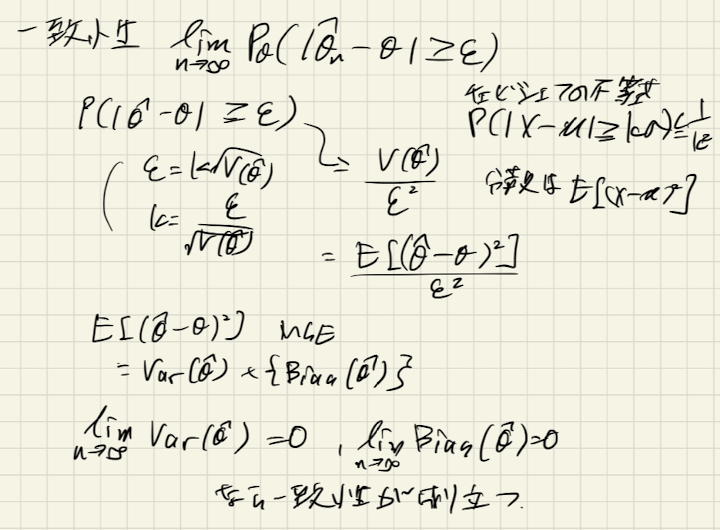 一致性 lim_{n→∞} P_θ(|θ̂_n - θ| ≥ ε)
チェビシェフの不等式
P(|θ̂ - θ| ≥ ε)
P(|X - μ| ≥ kσ) ≤ 1/k²
ε = k√V(θ̂)
≤ V(θ̂)/ε²
分散は E[(X-μ)²]
k = ε/√V(θ̂)
= E[(θ̂ - θ)²]/ε²
E[(θ̂ - θ)²] MSE
= Var(θ̂) + {Bias(θ̂)}
lim_{n→∞} Var(θ̂) = 0 , lim_{n→∞} Bias(θ̂) = 0
ならば一致性が成り立つ